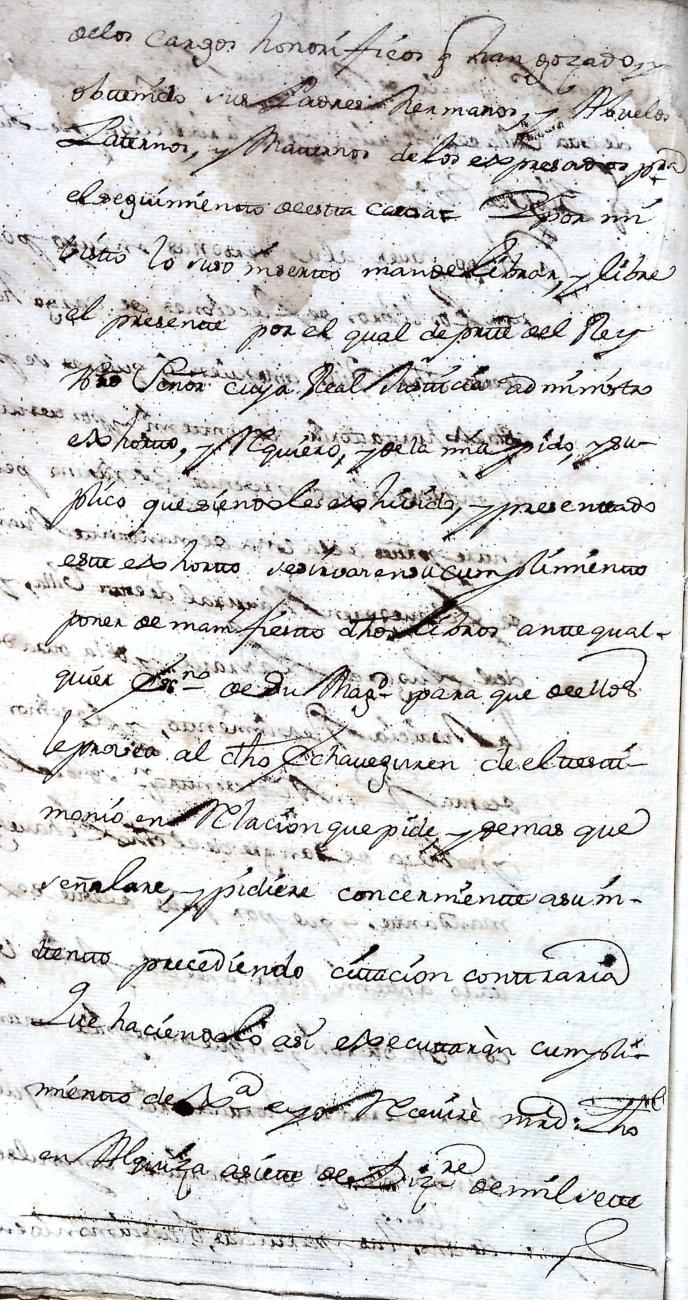 de los cargos honorificos q han gozado, y
obtenido sus Padres Hermanos, y Abuelos
Paternos, y Maternos de los expresados pra
el seguimiento de esta causa: Y por mi
visto lo suso inserto mande librar, y libre
el presente por el qual de prte del Rey
Nro Señor cuya Real Justicia administro
exhorto, y Requiero, y de la mia pido, y su-
plico que siendoles exhivido, y presentado
este exhorto se sirvaren su cumplimiento
poner de manifiesto dhos Libros ante qual-
quier Essno de Su Magd para que de ellos
le provea al dho Echaveguren de el testi-
monio en Relacion que pide, y demas que
señalare, y pidiere concerniente a su in-
tento precediendo citacion contraria
Que haciendolo asi executaràn cumpli-
miento de Xa e yo Recivirè mrd: Dho
en Alquiza a siete de Dizre de mil sete